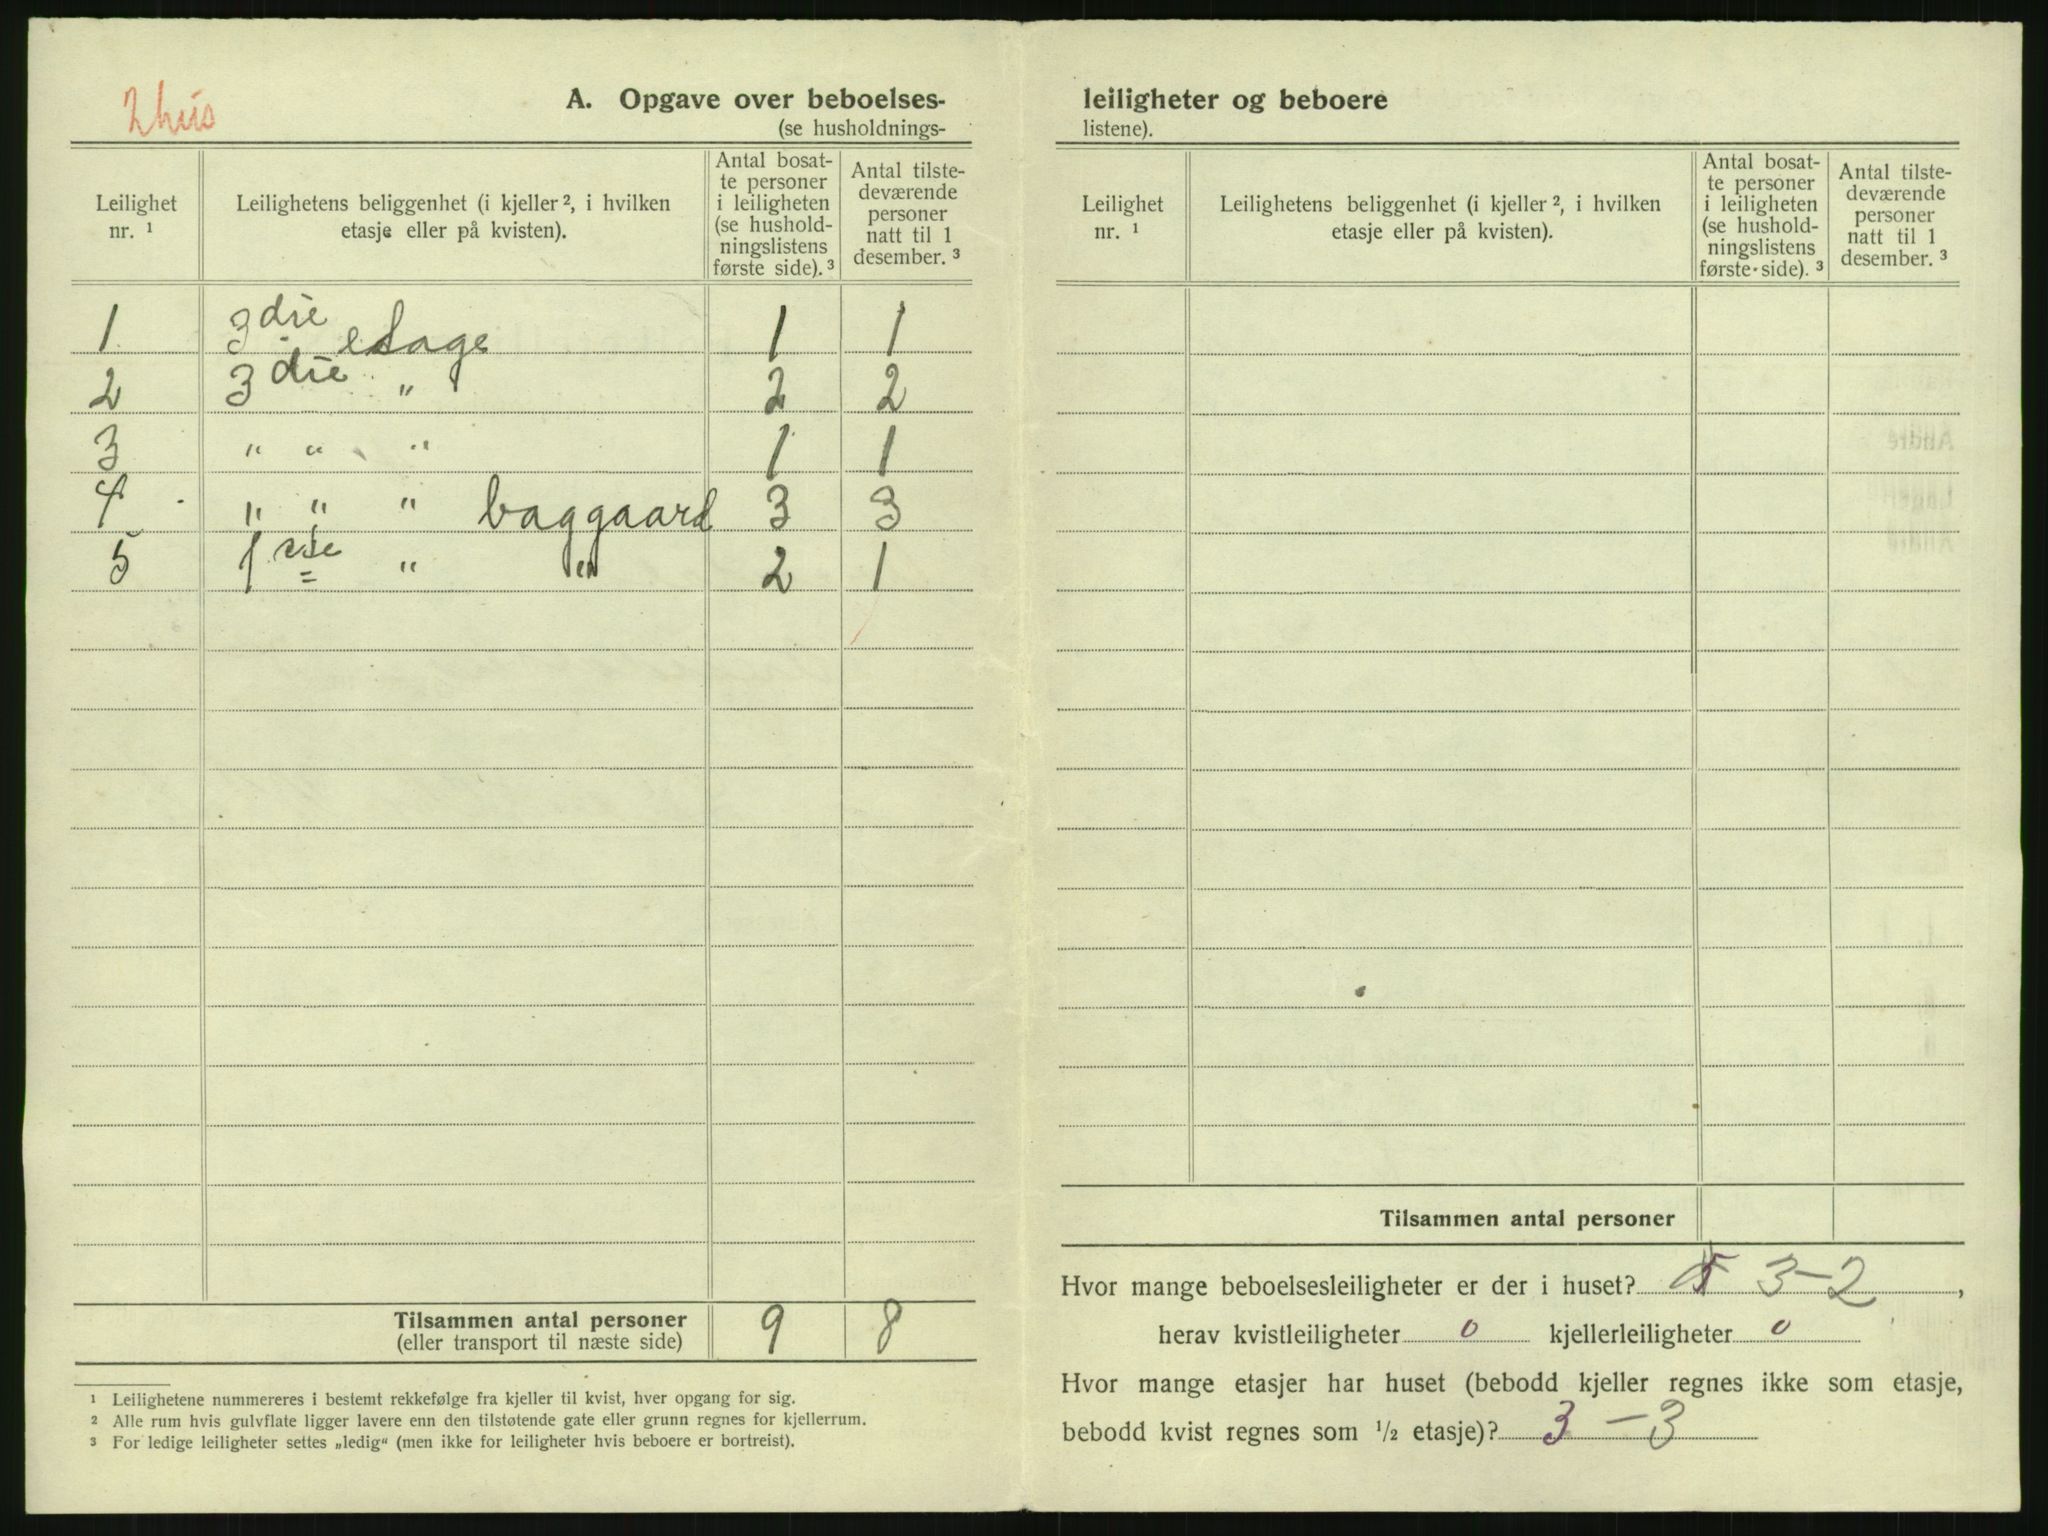 2 hus
A. Opgave over beboelses-
(se husholdnings-
Leilighet nr. ¹
Leilighetens beliggenhet (i kjeller ², i hvilken etasje eller på kvisten).
Antal bosat-
te personer
i leiligheten
(se hushold-
ningslistens
første side). ³
Antal tilste-
deværende
personer
natt til 1
desember. ³
1 3die etage 1 1
2 3die " 2 2
3 " " " 1 1
4 " " " baggaard 3 3
5 1ste " " 2 1
Tilsammen antal personer 9 8
(eller transport til næste side)
¹ Leilighetene nummereres i bestemt rekkefølge fra kjeller til kvist, hver opgang for sig.
² Alle rum hvis gulvflate ligger lavere enn den tilstøtende gate eller grunn regnes for kjellerrum.
³ For ledige leiligheter settes „ledig“ (men ikke for leiligheter hvis beboere er bortreist).
leiligheter og beboere
listene).
Leilighet nr. ¹
Leilighetens beliggenhet (i kjeller ², i hvilken etasje eller på kvisten).
Antal bosat-
te personer
i leiligheten
(se hushold-
ningslistens
første side). ³
Antal tilste-
deværende
personer
natt til 1
desember. ³
Tilsammen antal personer
Hvor mange beboelsesleiligheter er der i huset? 3-2,
herav kvistleiligheter 0 kjellerleiligheter 0
Hvor mange etasjer har huset (bebodd kjeller regnes ikke som etasje,
bebodd kvist regnes som ½ etasje)? 3 - 3